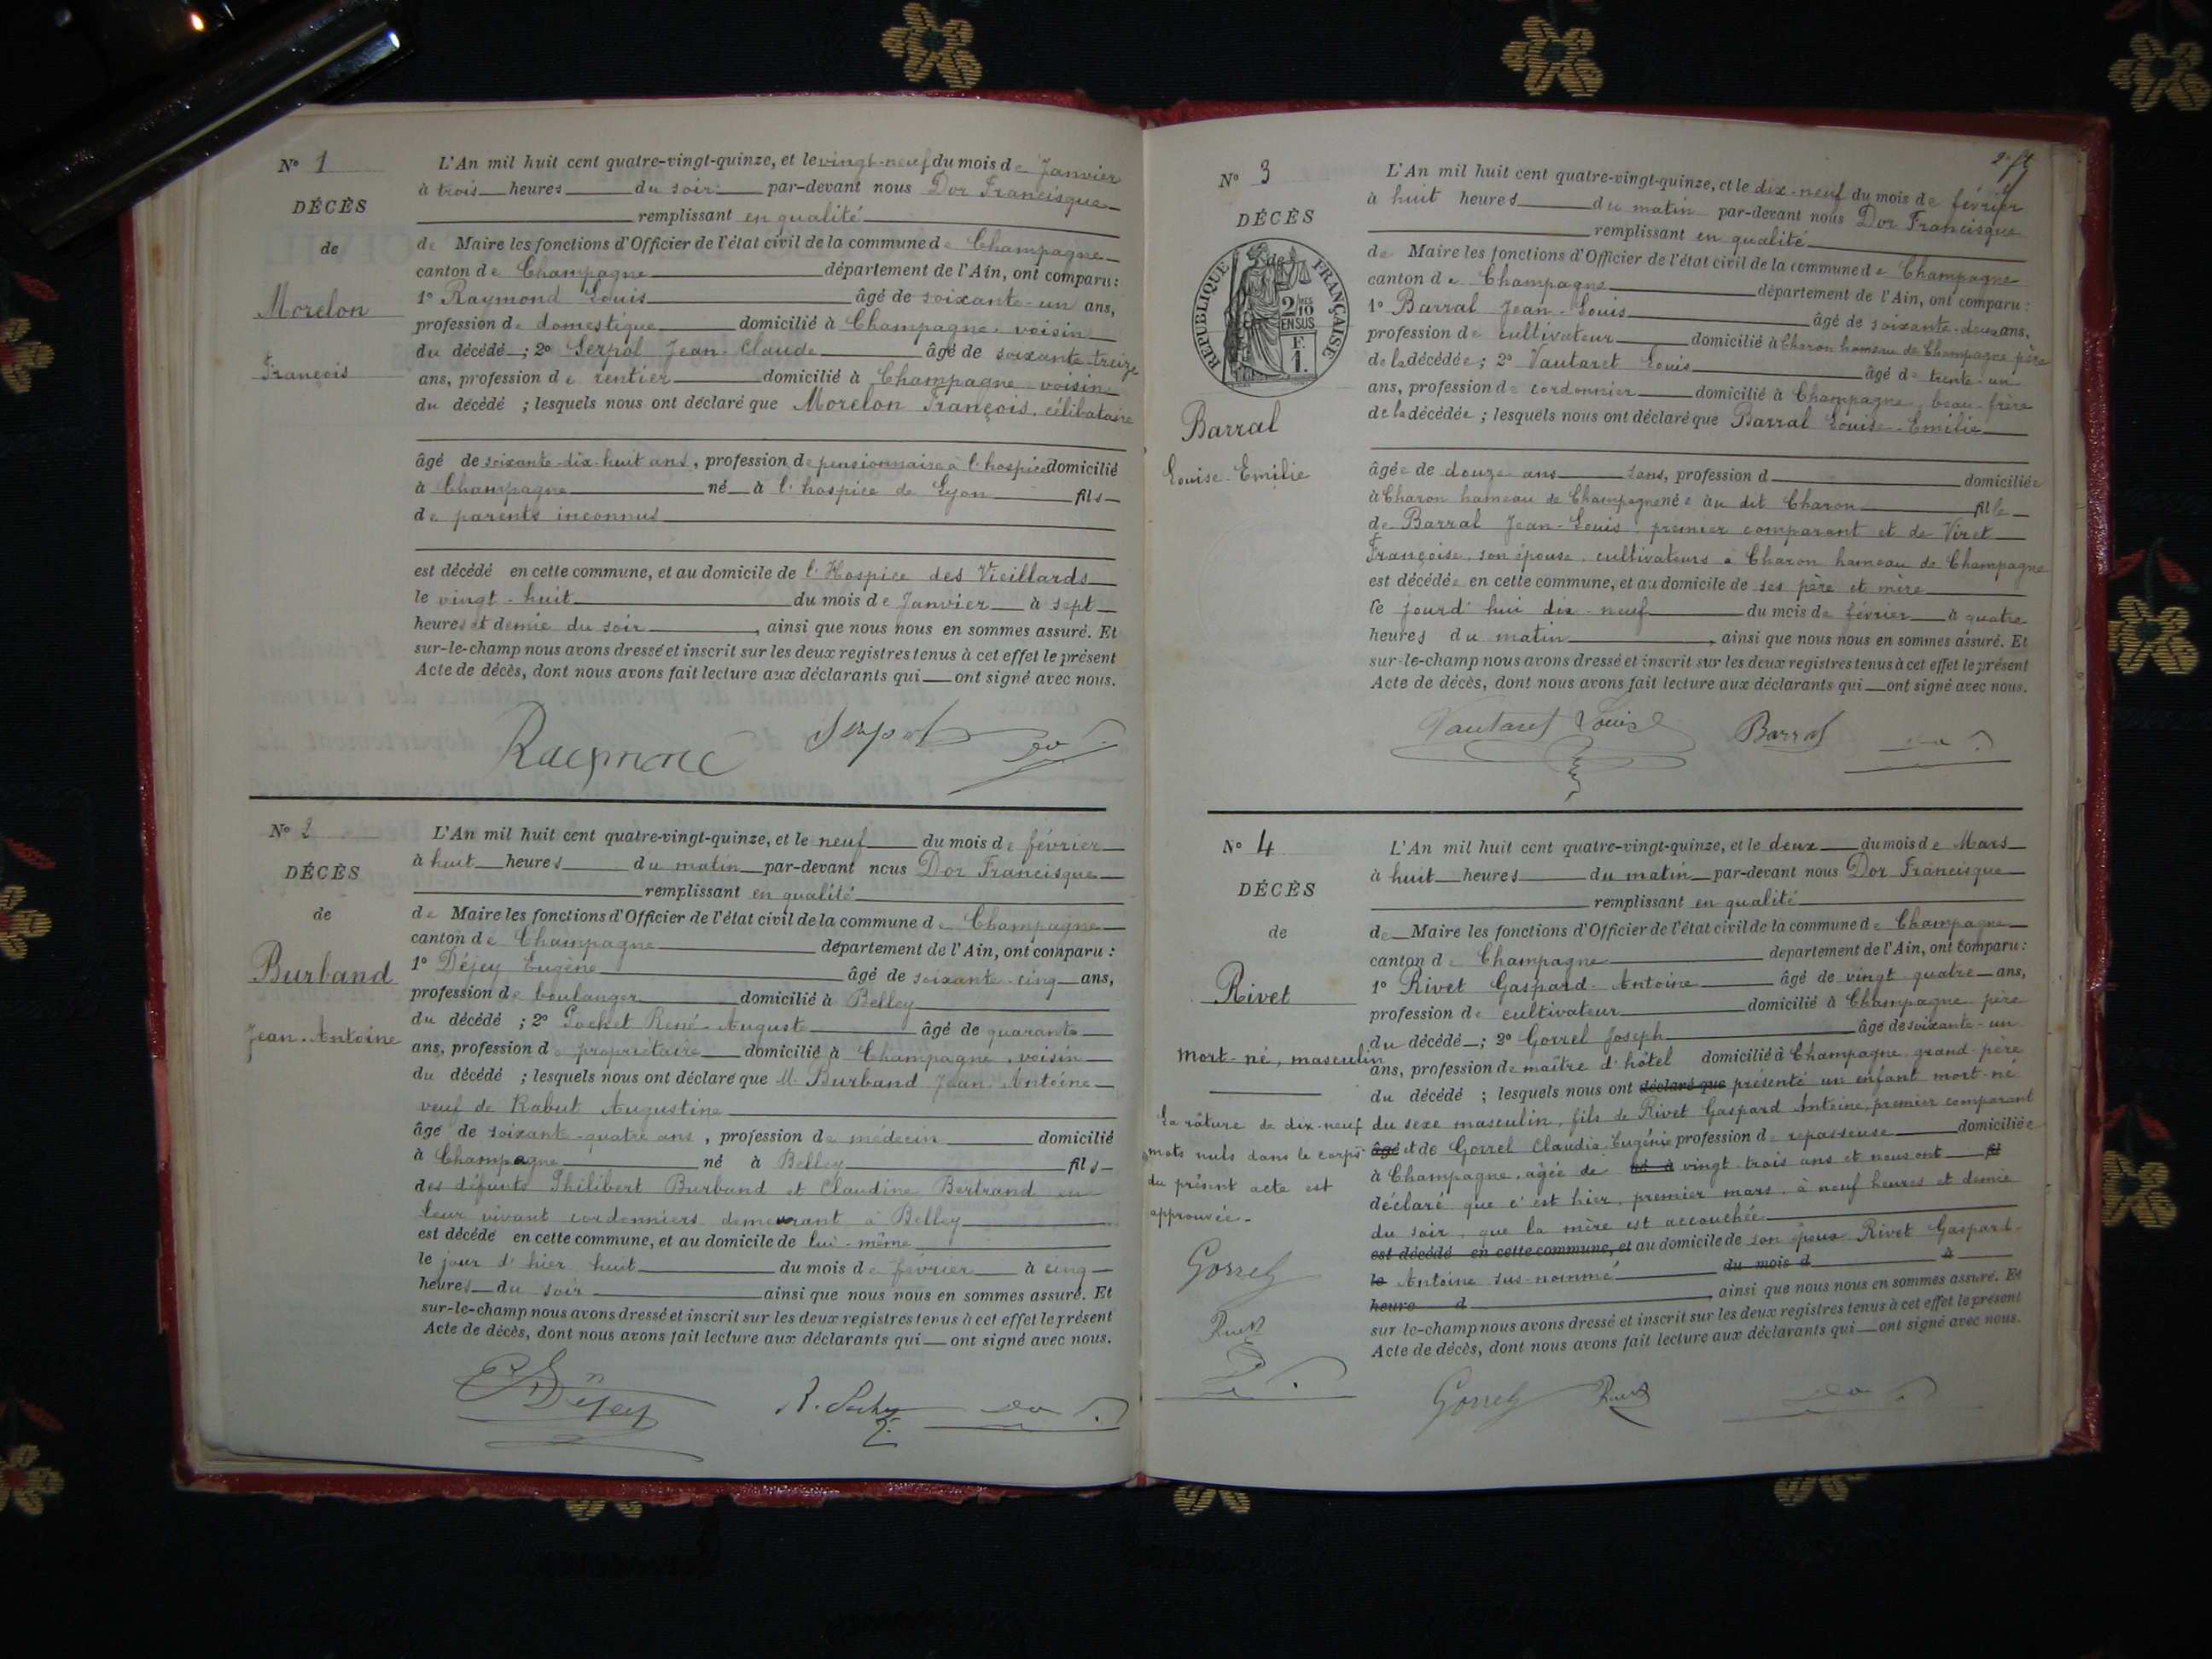 N° 1
DÉCÈS
de
Morelon
François
L'An mil huit cent quatre-vingt-quinze, et le vingt-neuf du mois de Janvier
à trois heures du soir par-devant nous Dor Francisque
remplissant en qualité
de Maire les fonctions d'Officier de l'état civil de la commune de Champagne
canton de Champagne département de l'Ain, ont comparu:
1° Raymond Louis âgé de soixante-un ans,
profession de domestique domicilié à Champagne, voisin
du décédé ; 2° Serpol Jean-Claude âgé de soixante-treize
ans, profession de rentier domicilié à Champagne voisin
du décédé ; lesquels nous ont déclaré que Morelon François, célibataire
âgé de soixante-dix-huit ans, profession de pensionnaire à l'hospice domicilié
à Champagne né à l'hospice de Lyon fils
de parents inconnus
est décédé en cette commune, et au domicile de l'Hospice des Vieillards
le vingt-huit du mois de Janvier à sept
heures et demie du soir, ainsi que nous nous en sommes assuré. Et
sur-le-champ nous avons dressé et inscrit sur les deux registres tenus à cet effet le présent
Acte de décès, dont nous avons fait lecture aux déclarants qui ont signé avec nous.
Raymond Serpol Dor
N° 2
DÉCÈS
de
Burband
Jean-Antoine
L'An mil huit cent quatre-vingt-quinze, et le neuf du mois de février
à huit heures du matin par-devant nous Dor Francisque
remplissant en qualité
de Maire les fonctions d'Officier de l'état civil de la commune de Champagne
canton de Champagne département de l'Ain, ont comparu :
1° Déjey Eugène âgé de soixante-cinq ans,
profession de boulanger domicilié à Belley
du décédé ; 2° Pochet René-Auguste âgé de quarante
ans, profession de propriétaire domicilié à Champagne, voisin
du décédé ; lesquels nous ont déclaré que M. Burband Jean-Antoine
veuf de Rabut Augustine
âgé de soixante-quatre ans, profession de médecin domicilié
à Champagne né à Belley fils
des défunts Philibert Burband et Claudine Bertrand en
leur vivant cordonniers demeurant à Belley
est décédé en cette commune, et au domicile de lui-même
le jour d'hier huit du mois de février à cinq
heures du soir ainsi que nous nous en sommes assuré. Et
sur-le-champ nous avons dressé et inscrit sur les deux registres tenus à cet effet le présent
Acte de décès, dont nous avons fait lecture aux déclarants qui ont signé avec nous.
Déjey R. Pochet Dor
N° 3
DÉCÈS
de
RÉPUBLIQUE FRANÇAISE
2/10 EN SUS
F. 1.
Barral
Louise-Emilie
L'An mil huit cent quatre-vingt-quinze, et le dix-neuf du mois de février
à huit heures du matin par-devant nous Dor Francisque
remplissant en qualité
de Maire les fonctions d'Officier de l'état civil de la commune de Champagne
canton de Champagne département de l'Ain, ont comparu :
1° Barral Jean-Louis âgé de soixante-deux ans,
profession de cultivateur domicilié à Charon hameau de Champagne père
de la décédée ; 2° Vautaret Louis âgé de trente-un
ans, profession de cordonnier domicilié à Champagne, beau-frère
de la décédée ; lesquels nous ont déclaré que Barral Louise-Emilie
âgée de douze ans sans, profession d domiciliée
à Charon hameau de Champagne née au dit Charon fille
de Barral Jean-Louis, premier comparant et de Viret
Françoise, son épouse, cultivateurs à Charon hameau de Champagne
est décédée en cette commune, et au domicile de ses père et mère
le jourd'hui dix-neuf du mois de février à quatre
heures du matin, ainsi que nous nous en sommes assuré. Et
sur-le-champ nous avons dressé et inscrit sur les deux registres tenus à cet effet le présent
Acte de décès, dont nous avons fait lecture aux déclarants qui ont signé avec nous.
Vautaret Louis Barral Dor
N° 4
DÉCÈS
de
Rivet
Mort-né, masculin
La râture de dix-neuf
mots nuls dans le corps
du présent acte est
approuvée.
Gorrel
Rivet
Dor
L'An mil huit cent quatre-vingt-quinze, et le deux du mois de Mars
à huit heures du matin par-devant nous Dor Francisque
remplissant en qualité
de Maire les fonctions d'Officier de l'état civil de la commune de Champagne
canton de Champagne département de l'Ain, ont comparu :
1° Rivet Gaspard-Antoine âgé de vingt-quatre ans,
profession de cultivateur domicilié à Champagne père
du décédé ; 2° Gorrel Joseph âgé de soixante-un
ans, profession de maître d'hôtel domicilié à Champagne grand-père
du décédé ; lesquels nous ont déclaré que présenté un enfant mort-né
du sexe masculin, fils de Rivet Gaspard Antoine, premier comparant
âgé et de Gorrel Claudia Eugénie profession de repasseuse domiciliée
à Champagne, âgée de né à vingt-trois ans et nous ont fil
déclaré que c'est hier, premier mars, à neuf heures et demie
du soir, que la mère est accouchée
est décédé en cette commune, et au domicile de son époux Rivet Gaspard-
le Antoine sus-nommé du mois d à
heure d, ainsi que nous nous en sommes assuré. Et
sur le-champ nous avons dressé et inscrit sur les deux registres tenus à cet effet le présent
Acte de décès, dont nous avons fait lecture aux déclarants qui ont signé avec nous.
Gorrel Rivet Dor